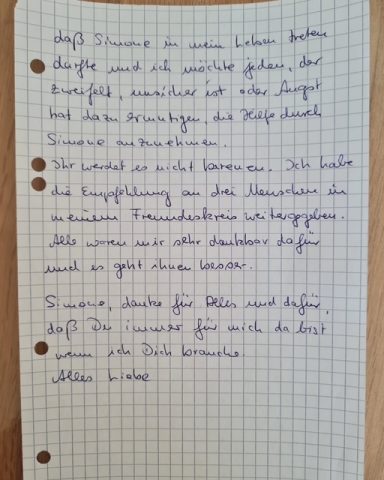 daß Simone in mein Leben treten
durfte und ich möchte jeden, der
zweifelt, unsicher ist oder Angst
hat dazu ermutigen, die Hilfe durch
Simone anzunehmen.
Ihr werdet es nicht bereuen. Ich habe
die Empfehlung an drei Menschen in
meinem Freundeskreis weitergegeben.
Alle waren mir sehr dankbar dafür
und es geht ihnen besser.
Simone, danke für Alles und dafür,
daß Du immer für mich da bist
wenn ich Dich brauche.
Alles Liebe